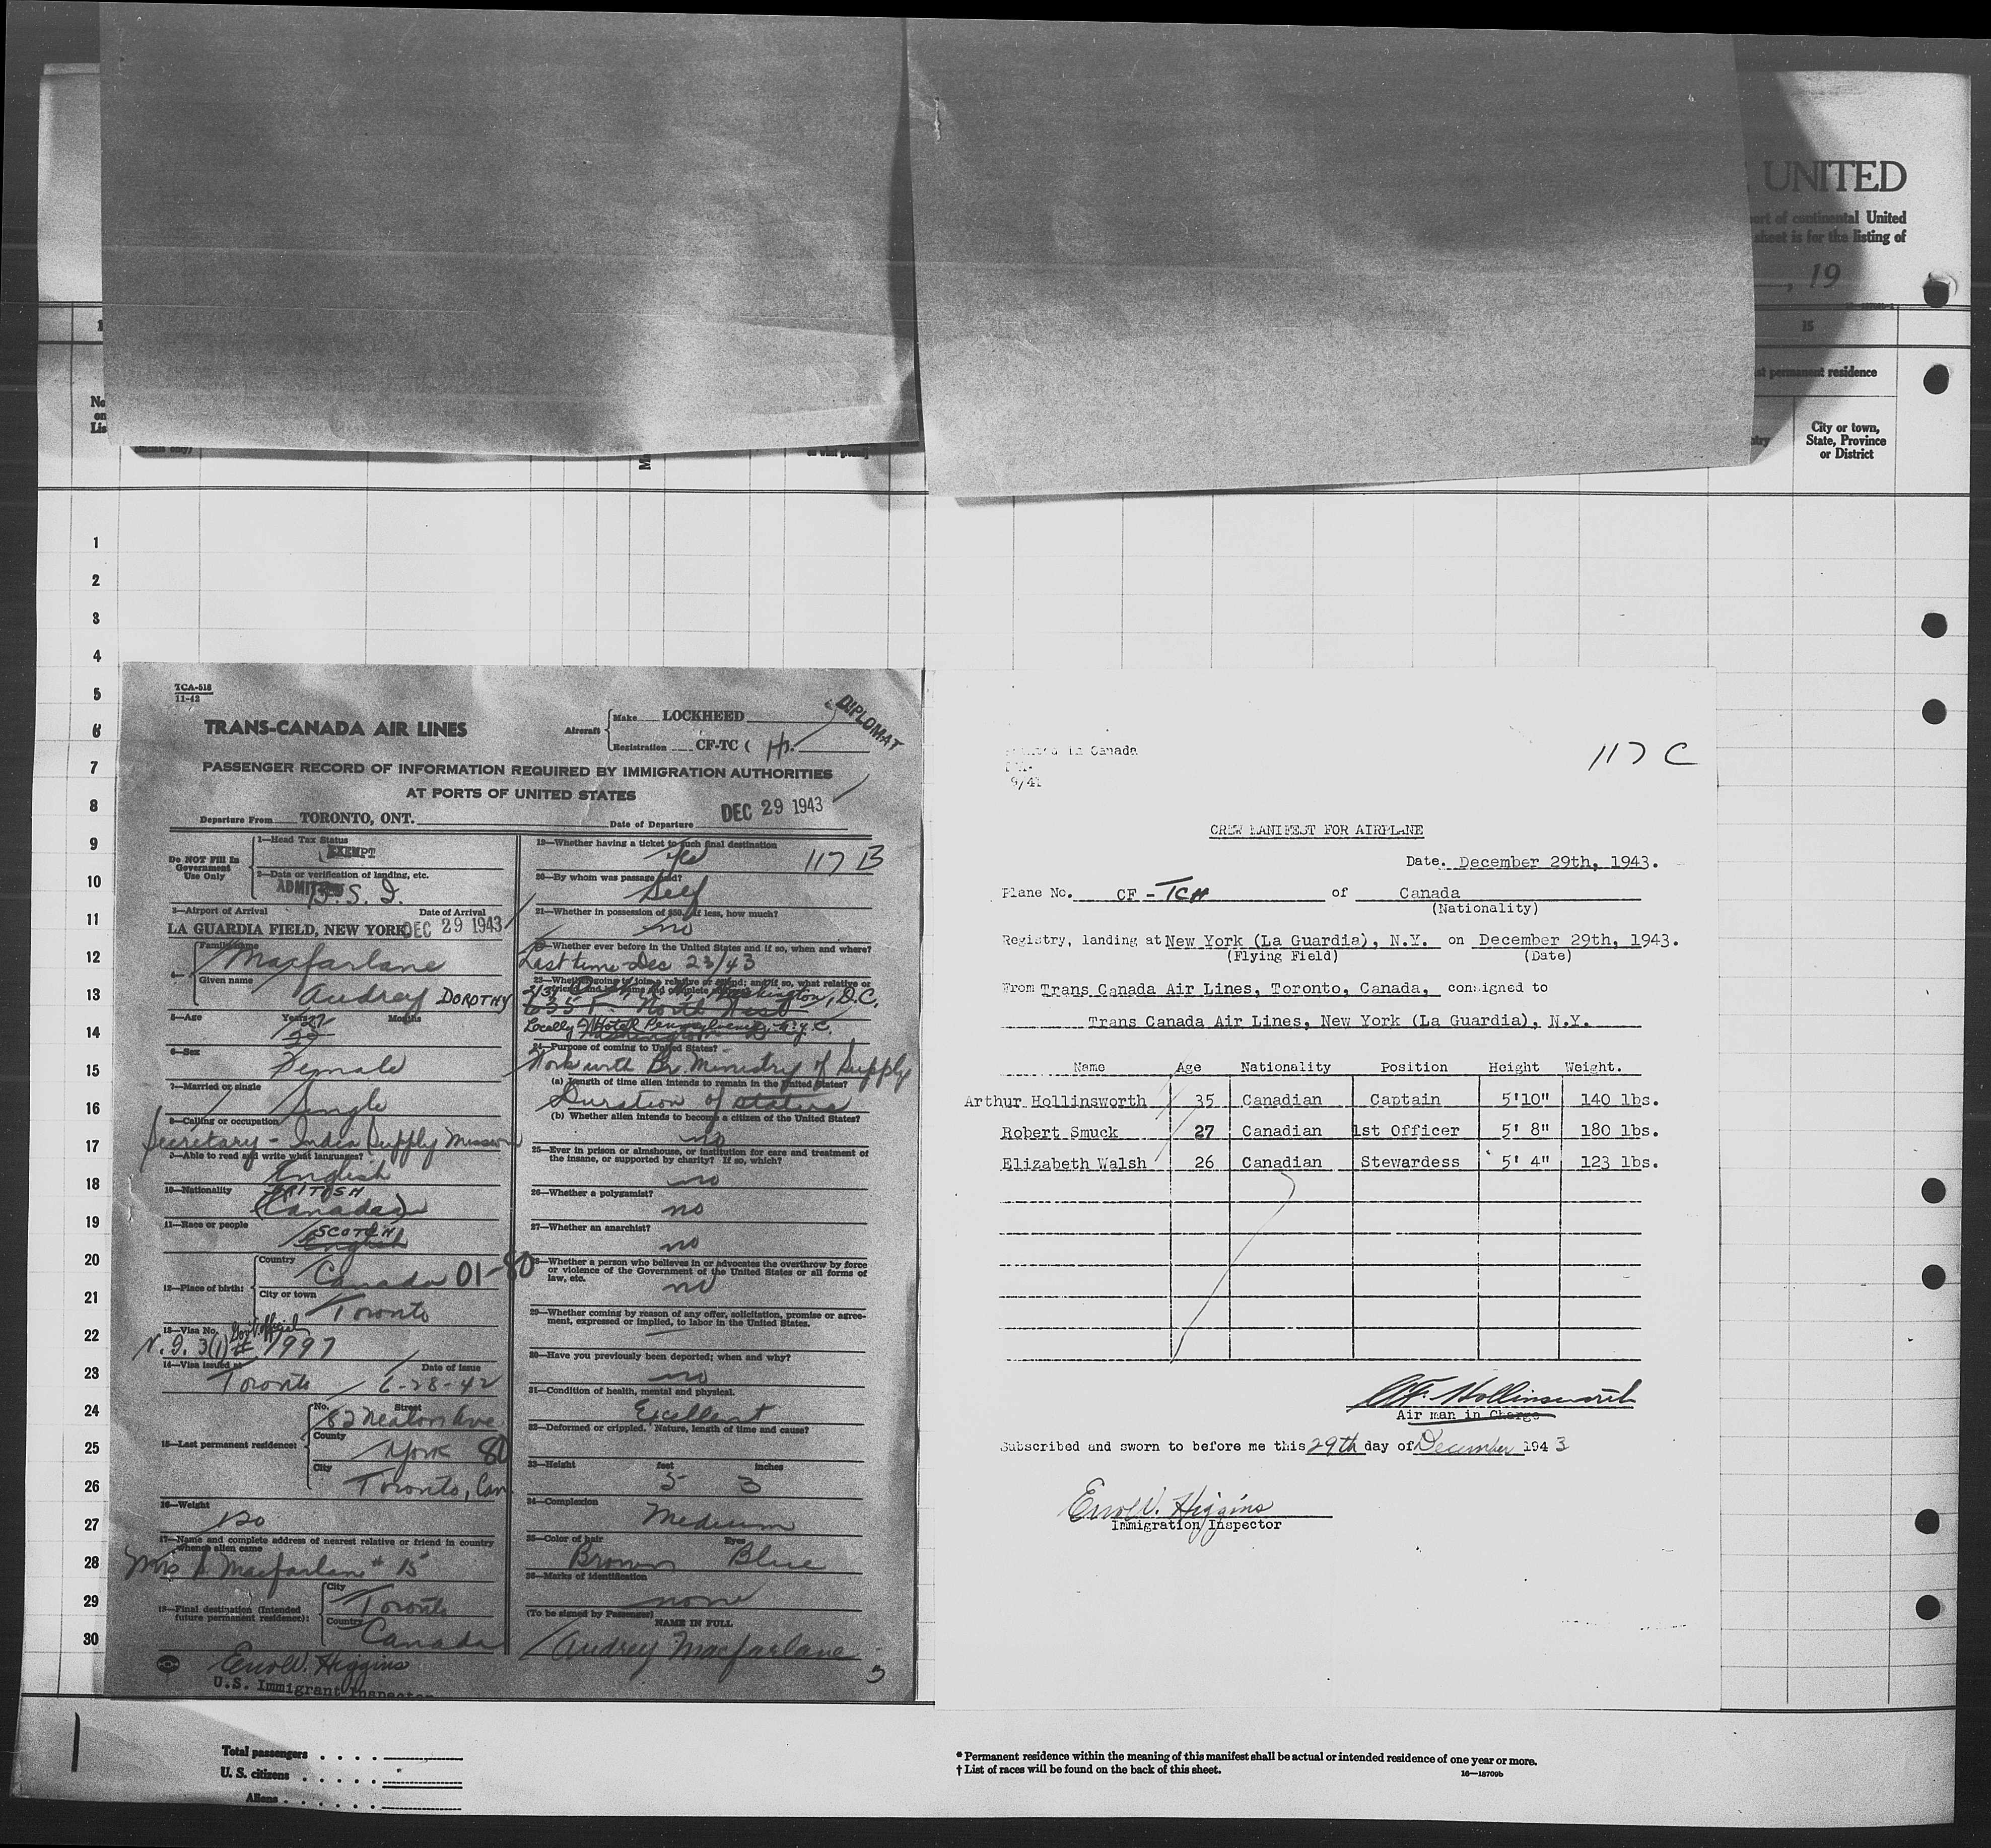 UNITED
port of continental United
sheet is for the listing of
, 19
15
permanent residence
No
on
List
officials only)
City or town,
State, Province
or District
1
2
3
4
5
6
7
8
9
10
11
12
13
14
15
16
17
18
19
20
21
22
23
24
25
26
27
28
29
30
TCA-518
11-42
TRANS-CANADA AIR LINES
Aircraft
Make LOCKHEED
Registration CF-TC ( H.
DIPLOMAT
PASSENGER RECORD OF INFORMATION REQUIRED BY IMMIGRATION AUTHORITIES
AT PORTS OF UNITED STATES
Departure From TORONTO, ONT. Date of Departure DEC 29 1943
Do NOT Fill In
Government
Use Only
1—Head Tax Status
EXEMPT
2—Data or verification of landing, etc.
ADMITTED
3—Airport of Arrival Date of Arrival
LA GUARDIA FIELD, NEW YORK DEC 29 1943
4—
Family name
Macfarlane
Given name
Audrey DOROTHY
5—Age Years Months
27
6—Sex
Female
7—Married or single
Single
8—Calling or occupation
Secretary - India Supply Mission
9—Able to read and write what languages?
English
10—Nationality
BRITISH
(Canada)
11—Race or people
SCOTCH
English
12—Place of birth:
Country
Canada 01-80
City or town
Toronto
13—Visa No.
Gov't official
3(1) # 1997
14—Visa issued at Date of issue
Toronto 6-28-42
15—Last permanent residence:
No. Street
82 Ave
County
York 80
City
Toronto, Can.
16—Weight
120
17—Name and complete address of nearest relative or friend in country
whence alien came
Mrs Macfarlane # 15
18—Final destination (Intended
future permanent residence):
City
Toronto
Country
Canada
Errol V. Higgins
U.S. Immigrant Inspector
19—Whether having a ticket to such final destination
Yes 117 B
20—By whom was passage paid?
Self
21—Whether in possession of $50, if less, how much?
no
22—Whether ever before in the United States and if so, when and where?
Last time Dec 23/43
23—Whether going to join a relative or friend; and if so, what relative or
friend and name and complete address
Washington, D.C.
635 F. North West
Locally Hotel Pennsylvania N.Y.C.
24—Purpose of coming to United States?
Work with Br. Ministry of Supply
(a) Length of time alien intends to remain in the United States?
Duration of status
(b) Whether alien intends to become a citizen of the United States?
no
25—Ever in prison or almshouse, or institution for care and treatment of
the insane, or supported by charity? If so, which?
no
26—Whether a polygamist?
no
27—Whether an anarchist?
no
28—Whether a person who believes in or advocates the overthrow by force
or violence of the Government of the United States or all forms of
law, etc.
no
29—Whether coming by reason of any offer, solicitation, promise or agree-
ment, expressed or implied, to labor in the United States.
30—Have you previously been deported; when and why?
no
31—Condition of health, mental and physical.
Excellent
32—Deformed or crippled. Nature, length of time and cause?
33—Height feet inches
5 3
34—Complexion
Medium
35—Color of hair Eyes
Brown Blue
36—Marks of identification
none
(To be signed by Passenger)
NAME IN FULL
Audrey Macfarlane
3
in Canada
9/41
117 C
CREW MANIFEST FOR AIRPLANE
Date. December 29th, 1943.
Plane No. CF - TCH of Canada
(Nationality)
Registry, landing at New York (La Guardia), N.Y. on December 29th, 1943.
(Flying Field) (Date)
From Trans Canada Air Lines, Toronto, Canada, consigned to
Trans Canada Air Lines, New York (La Guardia), N.Y.
Name Age Nationality Position Height Weight.
Arthur Hollinsworth 35 Canadian Captain 5'10" 140 lbs.
Robert Smuck 27 Canadian 1st Officer 5' 8" 180 lbs.
Elizabeth Walsh 26 Canadian Stewardess 5' 4" 123 lbs.
Hollinsworth
Air man in Charge
Subscribed and sworn to before me this 29th day of December 1943
Errol V. Higgins
Immigration Inspector
Total passengers
U. S. citizens
Aliens
* Permanent residence within the meaning of this manifest shall be actual or intended residence of one year or more.
† List of races will be found on the back of this sheet.
16—18709b